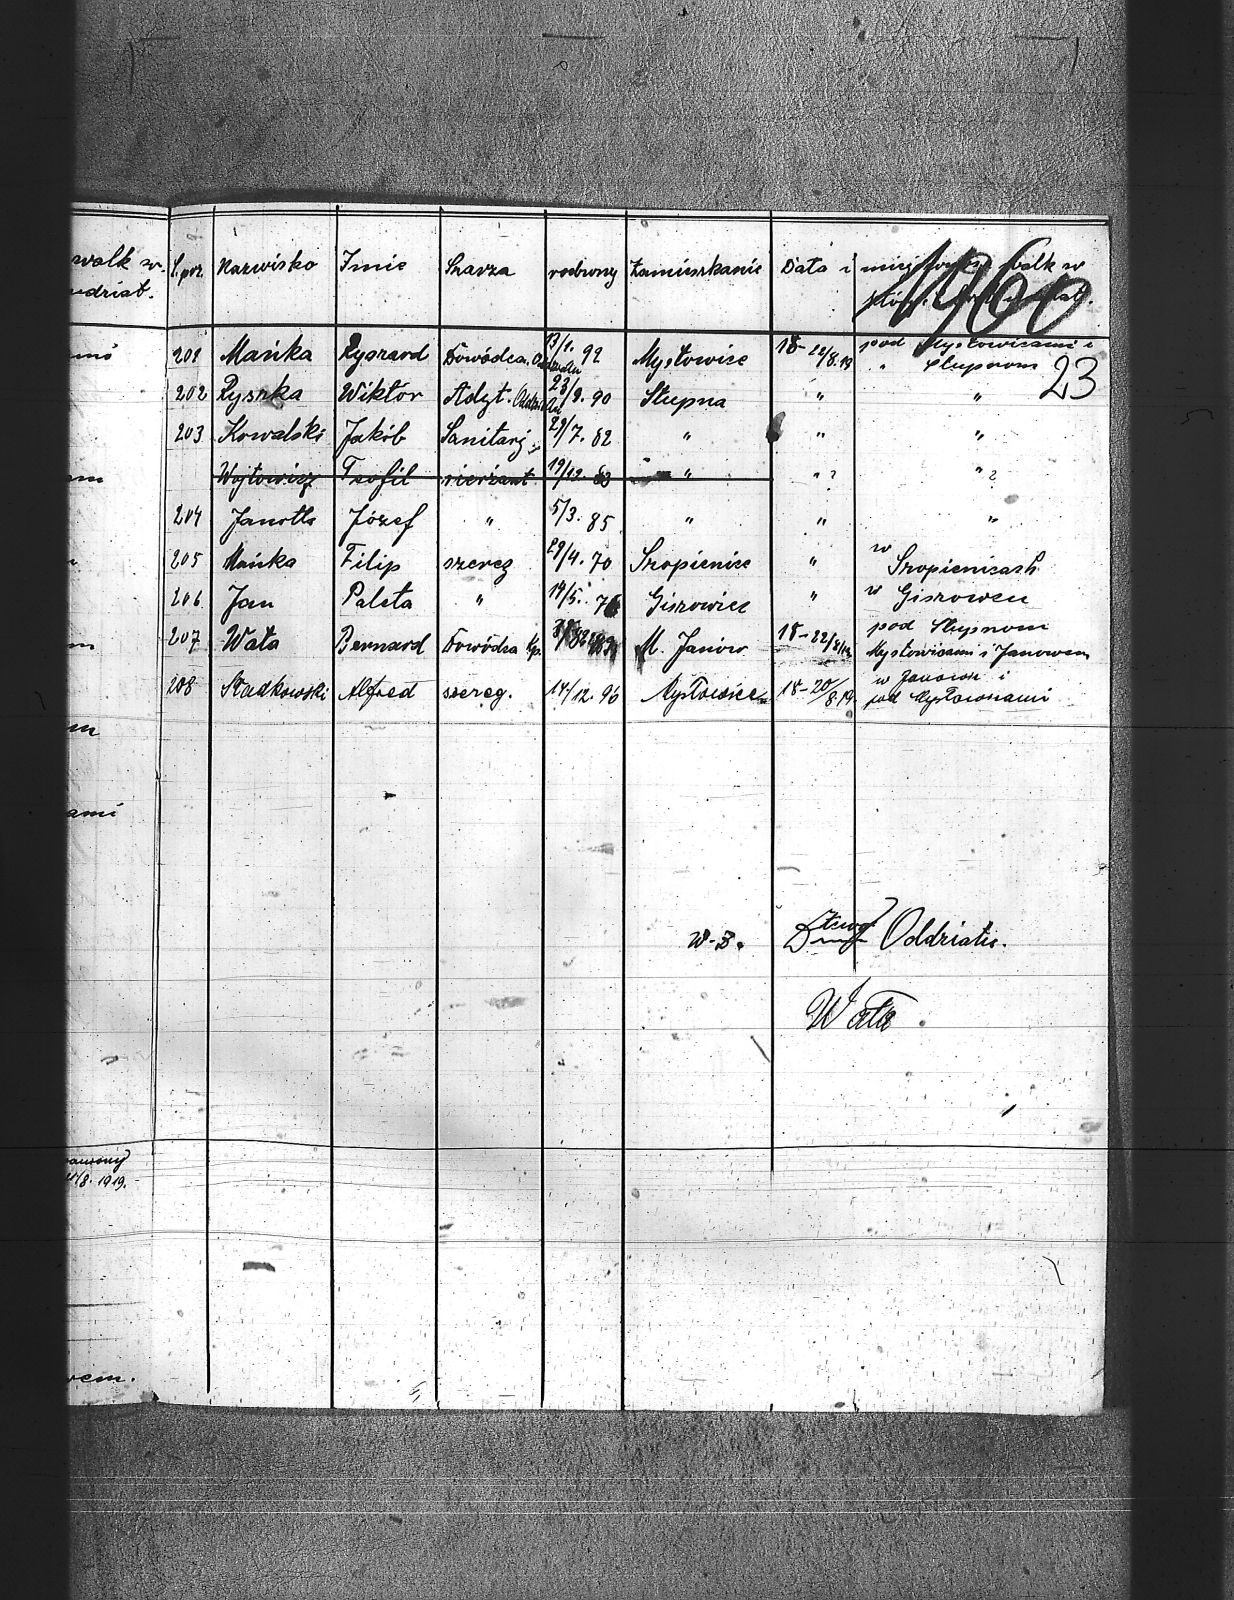 walk w. L.porz. Nazwisko Imie Szarza rodzony Zamieszkanie Data i miejscowość walk w
1960
23
201 Mańka Ryszard Dowódca 13/1. 92 Mysłowice 18-22/8.19 pod Mysłowicami i
" Słupnom
202 Ryszka Wiktór Adyt. 23/9. 90 Słupna " "
203 Kowalski Jakób Sanitarj 29/7. 82 " " "
Wojtowicz Teofil sierżant 19/12. " "? "?
204 Janotta Józef " 5/3. 85 " " "
205 Mańka Filip szereg 29/4. 70 Szopienice " w Szopienicach
206 Jan Paleta " 14/5. Giszowiec " w Giszowcu
207 Wata Bernard Dowódca Kp. M. Janów 18-22/8/19 pod Słupnom
Mysłowicami i Janowem
208 Sładkowski Alfred szereg. 14/12. 96 Mysłowice 18-20/8.19. w Janowie i
pod Mysłowicami
w-z. Oddziału.
Wata.
1/8. 1919.